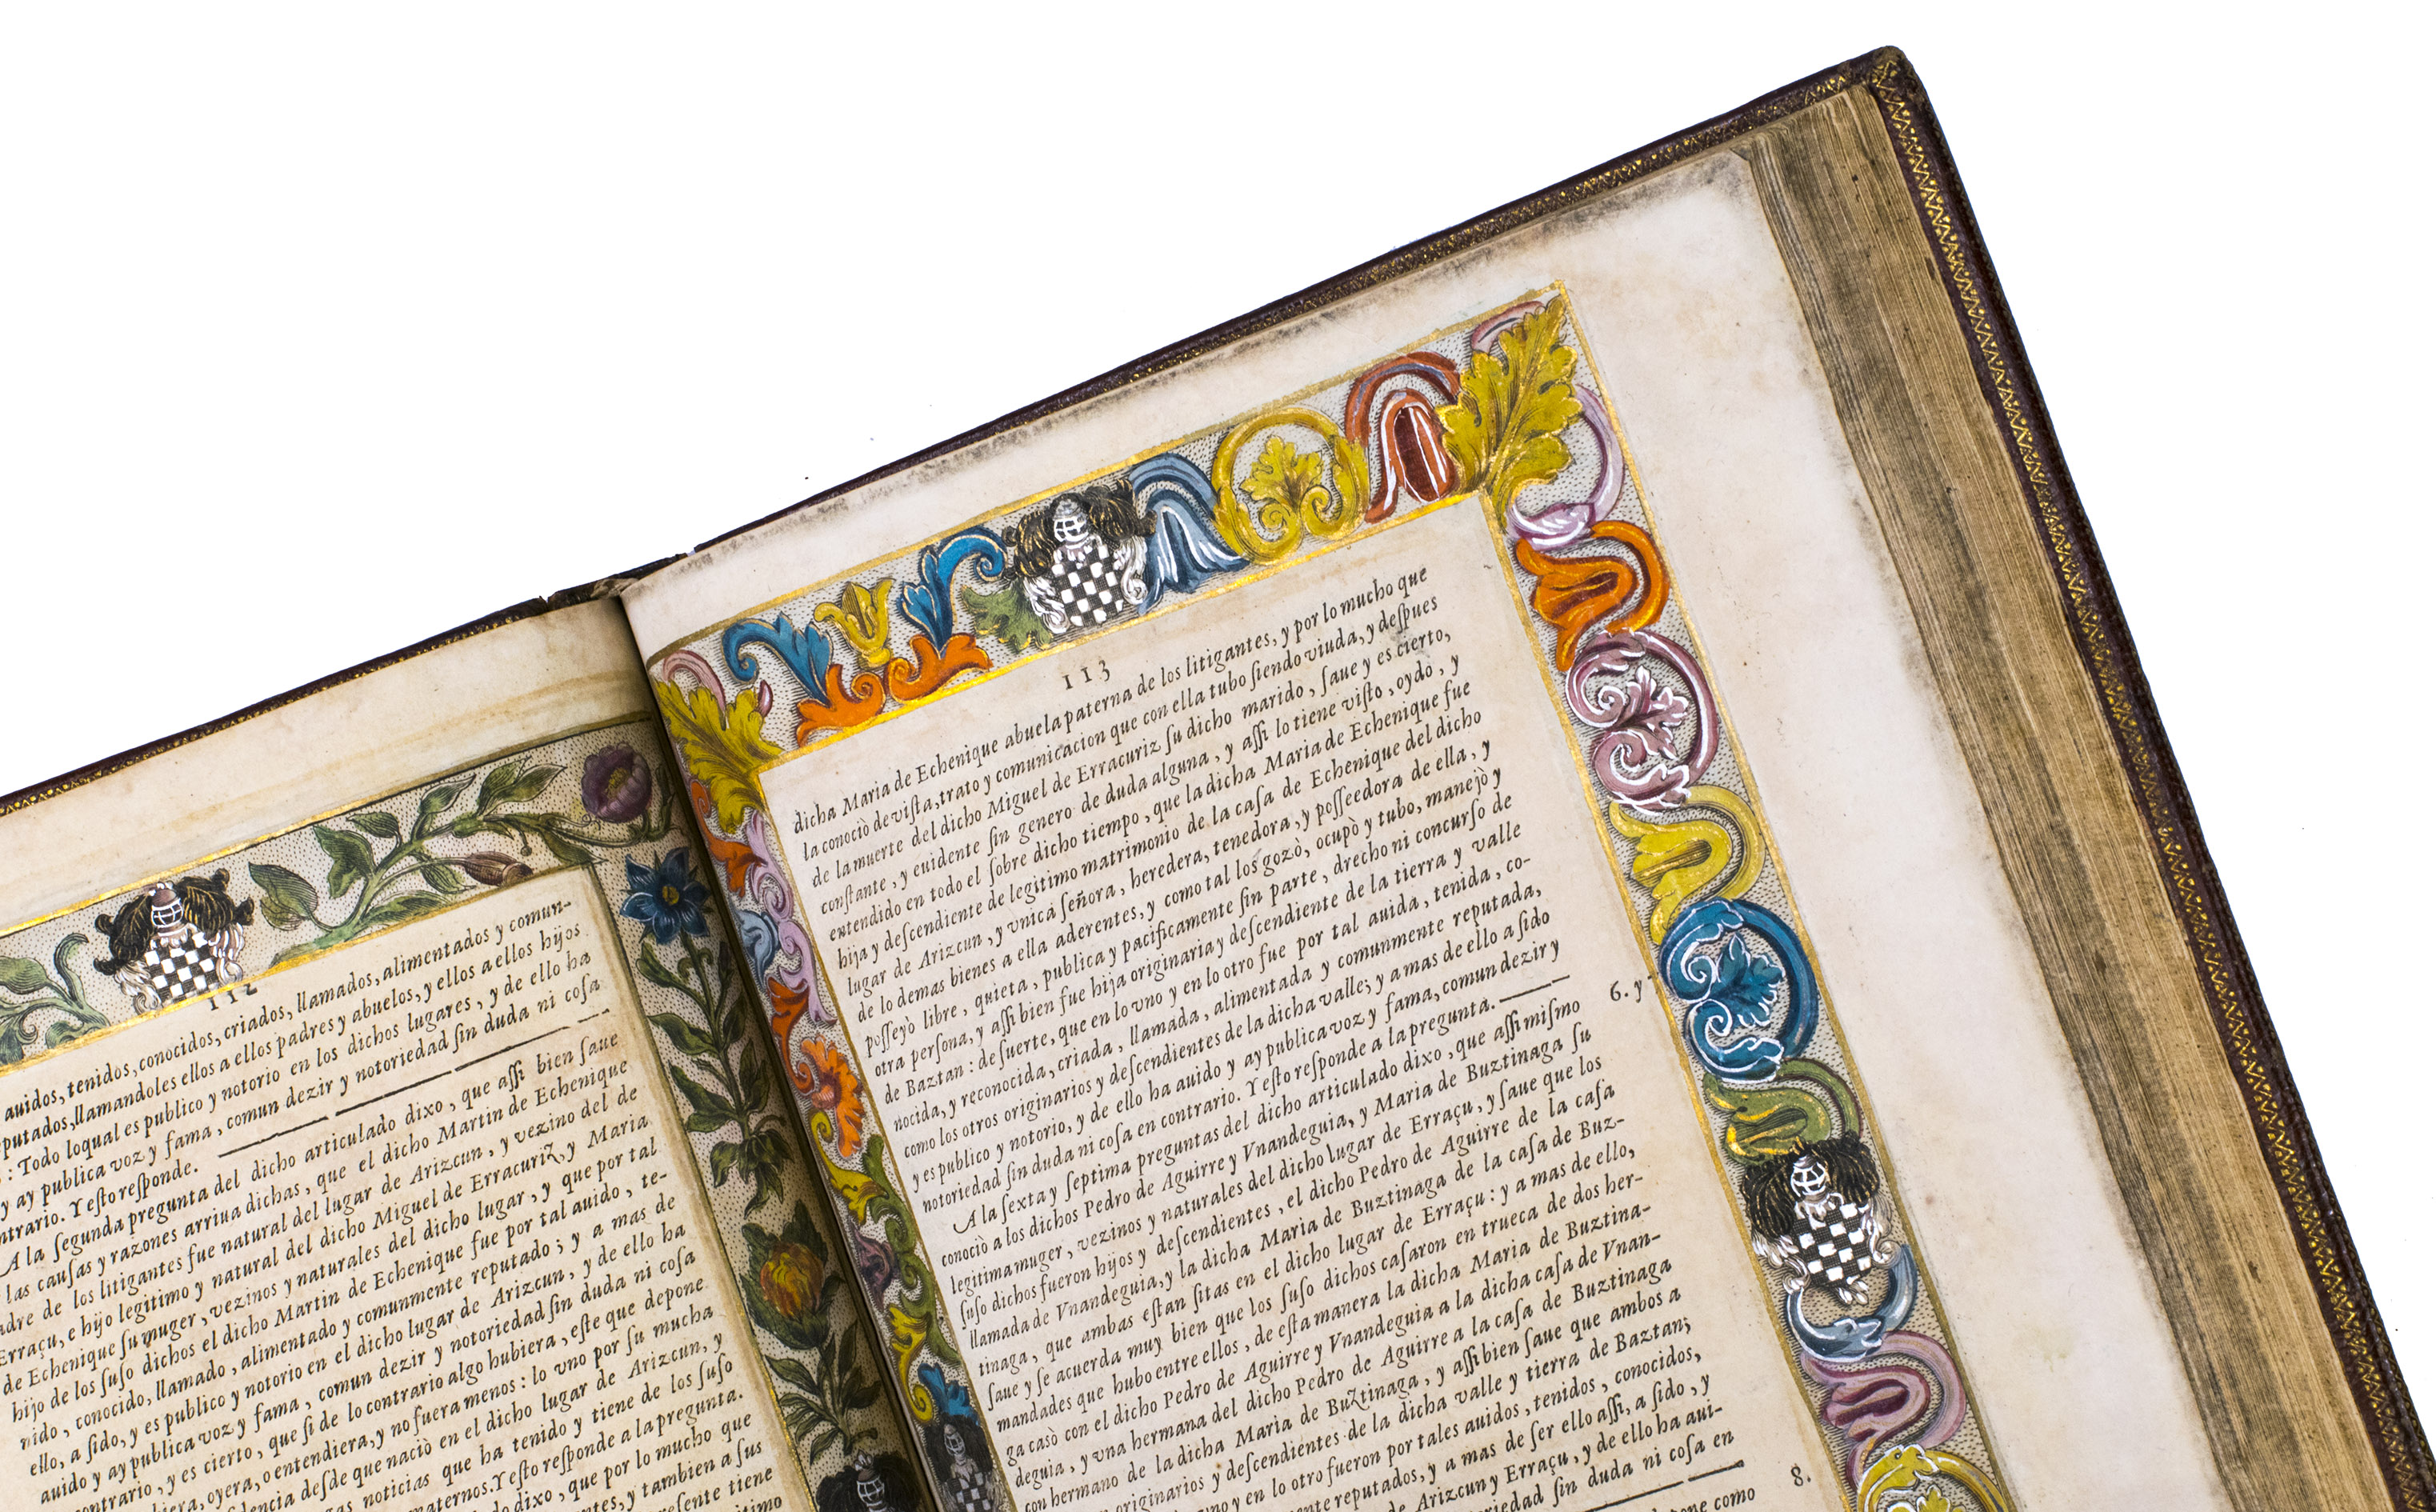 112
auidos, tenidos, conocidos, criados, llamados, alimentados y comun-
putados, llamandoles ellos a ellos padres y abuelos, y ellos a ellos hijos
: Todo loqual es publico y notorio en los dichos lugares, y de ello ha
y ay publica voz y fama, comun dezir y notoriedad ſin duda ni coſa
ntrario. Y eſto reſponde.
A la ſegunda pregunta del dicho articulado dixo, que aſſi bien ſaue
las cauſas y razones arriua dichas, que el dicho Martin de Echenique
adre de los litigantes fue natural del lugar de Arizcun, y vezino del de
Erraçu, e hijo legitimo y natural del dicho Miguel de Erracuriz, y Maria
de Echenique ſu muger, vezinos y naturales del dicho lugar, y que por tal
hijo de los ſuſo dichos el dicho Martin de Echenique fue por tal auido, te-
nido, conocido, llamado, alimentado y comunmente reputado; y a mas de
ello, a ſido, y es publico y notorio en el dicho lugar de Arizcun, y de ello ha
auido y ay publica voz y fama, comun dezir y notoriedad ſin duda ni coſa
contrario, y es cierto, que ſi de lo contrario algo hubiera, eſte que depone
biera, oyera, o entendiera, y no fuera menos: lo vno por ſu mucha
dencia deſde que naciò en el dicho lugar de Arizcun, y
gas noticias que ha tenido y tiene de los ſuſo
maternos. Y eſto reſponde a la pregunta.
do dixo, que por lo mucho que
ntes, y tambien a ſus
reſente tiene
itimo
113
dicha Maria de Echenique abuela paterna de los litigantes, y por lo mucho que
la conociò de viſta, trato y comunicacion que con ella tubo ſiendo viuda, y deſpues
de la muerte del dicho Miguel de Erracuriz ſu dicho marido, ſaue y es cierto,
conſtante, y euidente ſin genero de duda alguna, y aſſi lo tiene viſto, oydo, y
entendido en todo el ſobre dicho tiempo, que la dicha Maria de Echenique fue
hija y deſcendiente de legitimo matrimonio de la caſa de Echenique del dicho
lugar de Arizcun, y vnica ſeñora, heredera, tenedora, y poſſeedora de ella, y
de lo demas bienes a ella aderentes, y como tal los gozò, ocupò y tubo, manejò y
poſſeyò libre, quieta, publica y pacificamente ſin parte, drecho ni concurſo de
otra perſona, y aſſi bien fue hija originaria y deſcendiente de la tierra y valle
de Baztan: de ſuerte, que en lo vno y en lo otro fue por tal auida, tenida, co-
nocida, y reconocida, criada, llamada, alimentada y comunmente reputada,
como los otros originarios y deſcendientes de la dicha valle; y a mas de ello a ſido
y es publico y notorio, y de ello ha auido y ay publica voz y fama, comun dezir y
notoriedad ſin duda ni coſa en contrario. Y eſto reſponde a la pregunta.
6. y
A la ſexta y ſeptima preguntas del dicho articulado dixo, que aſſi miſmo
conociò a los dichos Pedro de Aguirre y Vnandeguia, y Maria de Buztinaga ſu
legitima muger, vezinos y naturales del dicho lugar de Erraçu, y ſaue que los
ſuſo dichos fueron hijos y deſcendientes, el dicho Pedro de Aguirre de la caſa
llamada de Vnandeguia, y la dicha Maria de Buztinaga de la caſa de Buz-
tinaga, que ambas eſtan ſitas en el dicho lugar de Erraçu: y a mas de ello,
ſaue y ſe acuerda muy bien que los ſuſo dichos caſaron en trueca de dos her-
mandades que hubo entre ellos, de eſta manera la dicha Maria de Buztina-
ga casò con el dicho Pedro de Aguirre y Vnandeguia a la dicha caſa de Vnan-
deguia, y vna hermana del dicho Pedro de Aguirre a la caſa de Buztinaga
con hermano de la dicha Maria de Buztinaga, y aſſi bien ſaue que ambos a
originarios y deſcendientes de la dicha valle y tierra de Baztan;
vno y en lo otro fueron por tales auidos, tenidos, conocidos,
mente reputados, y a mas de ſer ello aſſi, a ſido, y
de Arizcun y Erraçu, y de ello ha aui-
oriedad ſin duda ni coſa en
8.
depone como